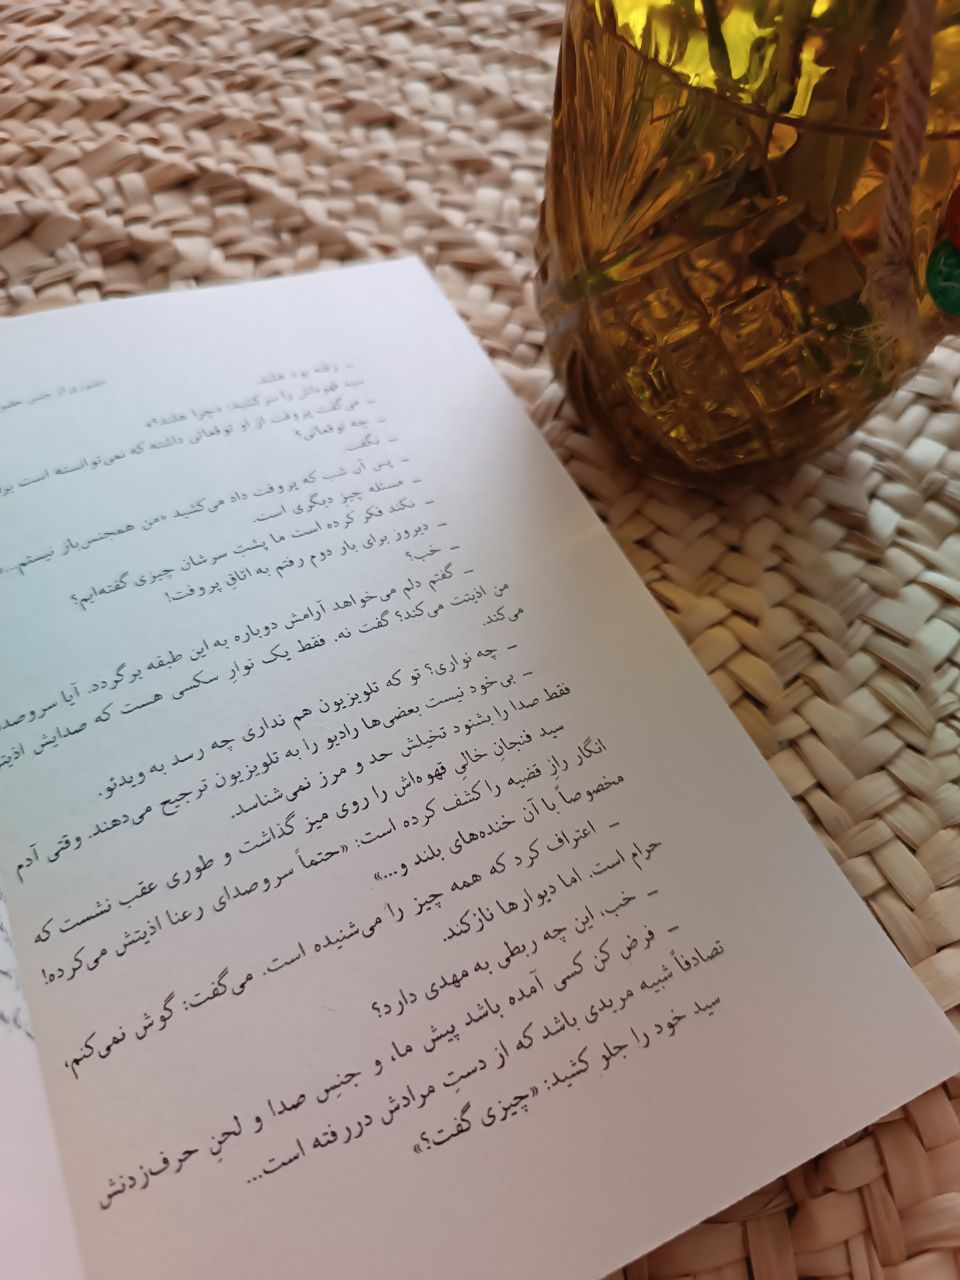 ـ رفته بود هلند.
سید قهوه‌اش را سر کشید. «چرا هلند؟»
ـ می‌گفت پروفت از او توقعاتی داشته که نمی‌توانسته است
ـ چه توقعاتی؟
ـ نگفت.
ـ پس آن شب که پروفت داد می‌کشید «من همجنس‌باز نیستم...»
ـ مسئله چیز دیگری است.
ـ نکند فکر کرده است ما پشتِ سرشان چیزی گفته‌ایم؟
ـ دیروز برای بار دوم رفتم به اتاقِ پروفت!
ـ خب؟
ـ گفتم دلم می‌خواهد آرامش دوباره به این طبقه برگردد. آیا سروصدا
من اذیتت می‌کند؟ گفت نه. فقط یک نوارِ سکسی هست که صدایش
می‌کند.
ـ چه نواری؟ تو که تلویزیون هم نداری چه رسد به ویدئو.
ـ بی‌خود نیست بعضی‌ها رادیو را به تلویزیون ترجیح می‌دهند. وقتی آدم
فقط صدا را بشنود تخیلش حد و مرز نمی‌شناسد.
سید فنجانِ خالیِ قهوه‌اش را روی میز گذاشت و طوری عقب نشست که
انگار رازِ قضیه را کشف کرده است: «حتماً سروصدای رعنا اذیتش می‌کرده!
مخصوصاً با آن خنده‌های بلند و...»
ـ اعتراف کرد که همه چیز را می‌شنیده است. می‌گفت: گوش نمی‌کنم،
حرام است. اما دیوارها نازکند.
ـ خب، این چه ربطی به مهدی دارد؟
ـ فرض کن کسی آمده باشد پیش ما، و جنسِ صدا و لحنِ حرف‌زدنش
تصادفاً شبیه مریدی باشد که از دستِ مرادش دررفته است...
سید خود را جلو کشید: «چیزی گفت؟»